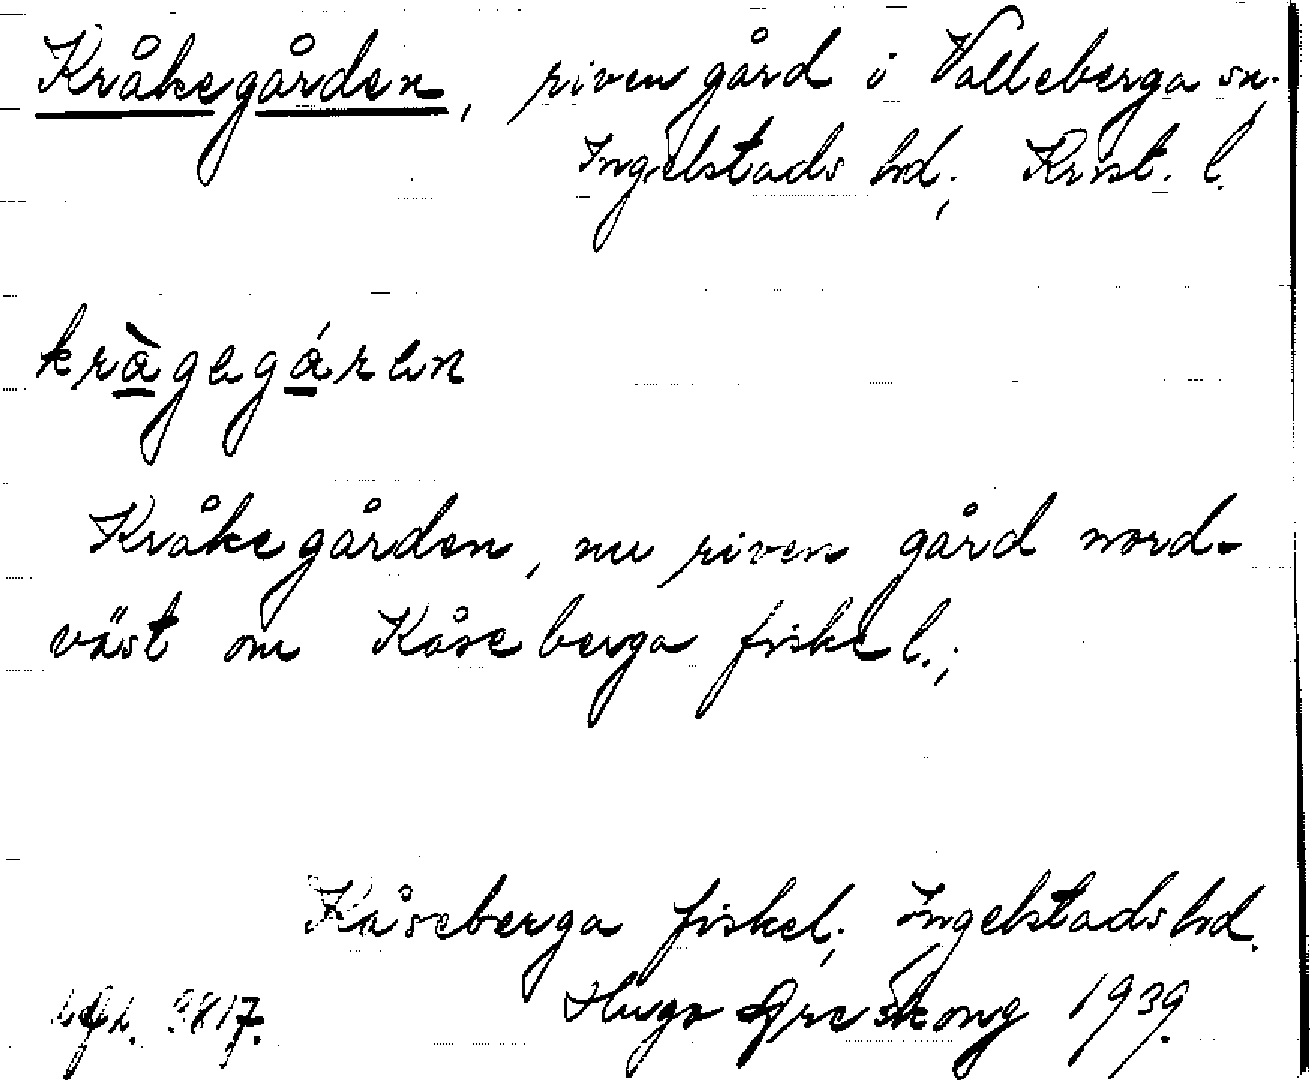 Kråkegården, riven gård i Valleberga sn.
Ingelstads hd; Krist. l.
kràgegáren
Kråkegården, nu riven gård nord-
väst om Kåseberga fiskel.;
Kåseberga fiskel; Ingelstads hd.
3817. Hugo 1939.